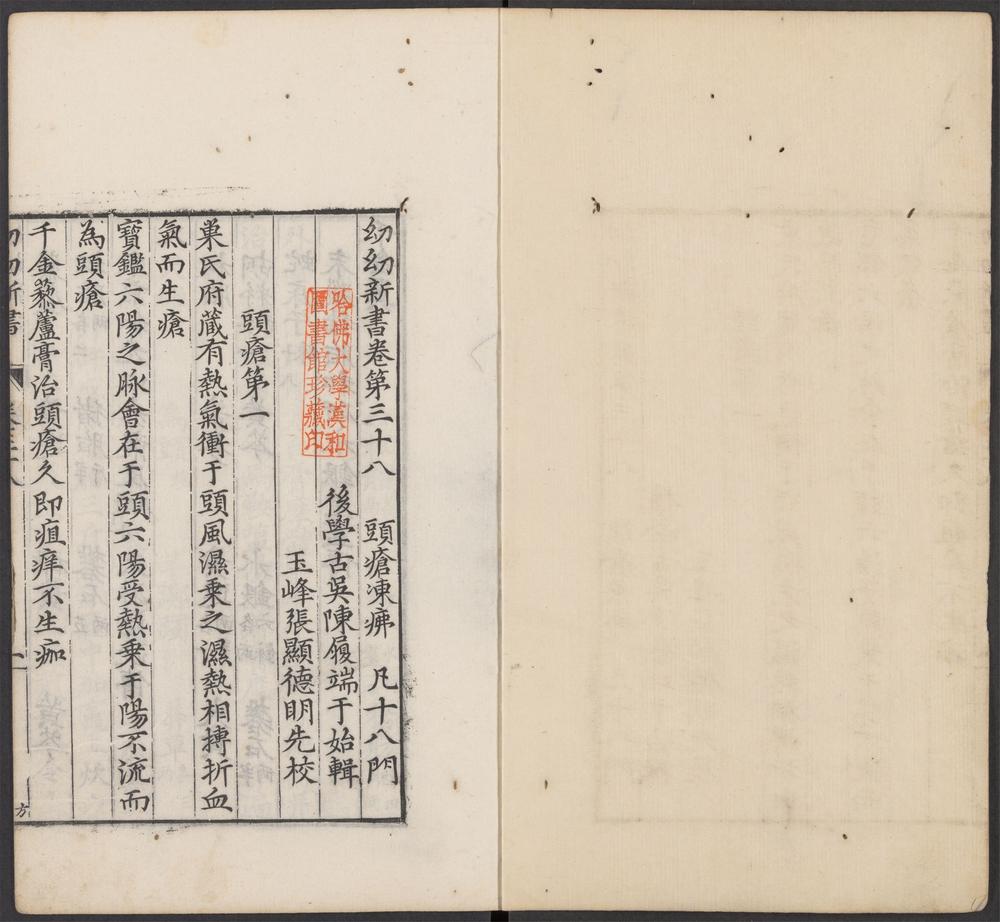 幼幼新書卷第三十八 頭瘡凍疿 凡十八門
後學古吳陳履端于始輯
玉峰張顯德明先校
哈佛大學漢和
圖書館珍藏印
頭瘡第一
巢氏府蔵有熱氣衝于頭風濕乗之濕熱相摶折血
氣而生瘡
寶鑑六陽之脉會在于頭六陽受熱乗于陽不流而
為頭瘡
千金藜蘆膏治頭瘡久即疽痒不生痂
幼幼新書
一
方